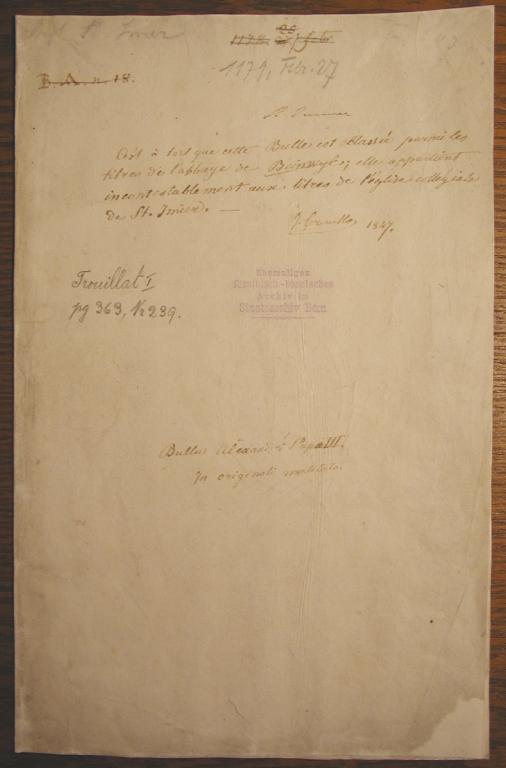 St. Imer
1179, Febr. 27
B. A. n. 18.
C'est à tort que cette Bulle est classée parmi les
titres de l'abbaye de Beinwyl; elle appartient
incontestablement aux titres de l'église collégiale
de St. Imier. —
1847.
Trouillat I
pg 363, Nr 239.
Ehemaliges
fürstbischöfl.-baselisches
Archiv im
Staatsarchiv Bern
Bulla Alexandri Papae III.
In originali